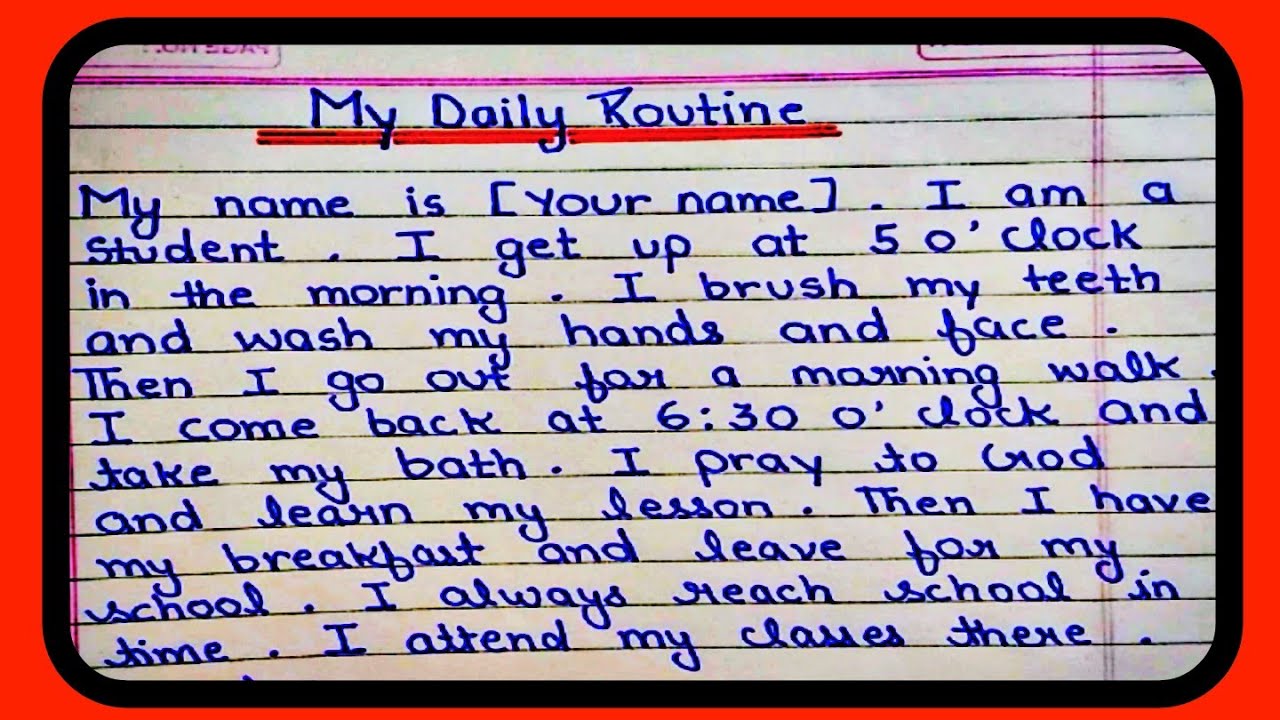 My Daily Routine
My name is [Your name]. I am a
student. I get up at 5 o'clock
in the morning. I brush my teeth
and wash my hands and face.
Then I go out for a morning walk.
I come back at 6:30 o'clock and
take my bath. I pray to God
and learn my lesson. Then I have
my breakfast and leave for my
school. I always reach school in
time. I attend my classes there.